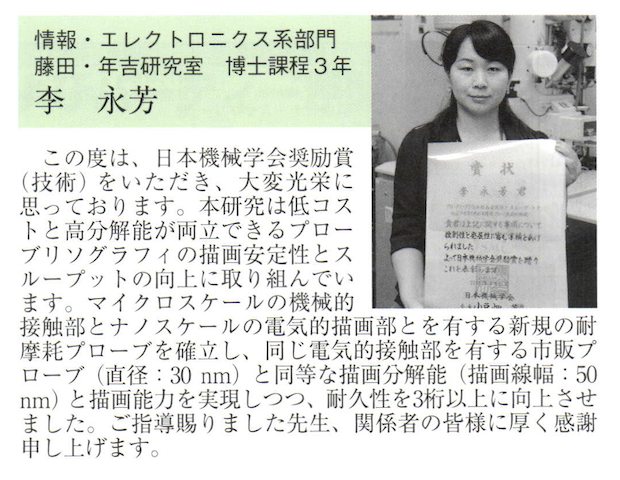 情報・エレクトロニクス系部門
藤田・年吉研究室　博士課程3年
李　永芳
この度は、日本機械学会奨励賞
（技術）をいただき、大変光栄に
思っております。本研究は低コス
トと高分解能が両立できるプロー
ブリソグラフィの描画安定性とス
ループットの向上に取り組んでい
ます。マイクロスケールの機械的
接触部とナノスケールの電気的描画部とを有する新規の耐
摩耗プローブを確立し、同じ電気的接触部を有する市販プ
ローブ（直径：30 nm）と同等な描画分解能（描画線幅：50
nm）と描画能力を実現しつつ、耐久性を3桁以上に向上させ
ました。ご指導賜りました先生、関係者の皆様に厚く感謝
申し上げます。
賞状
李永芳君
貴君は上記に関する事項について
独創性と発展性に富む業績をあげ
られました
よって日本機械学会奨励賞を贈り
これを表彰します
日本機械学会